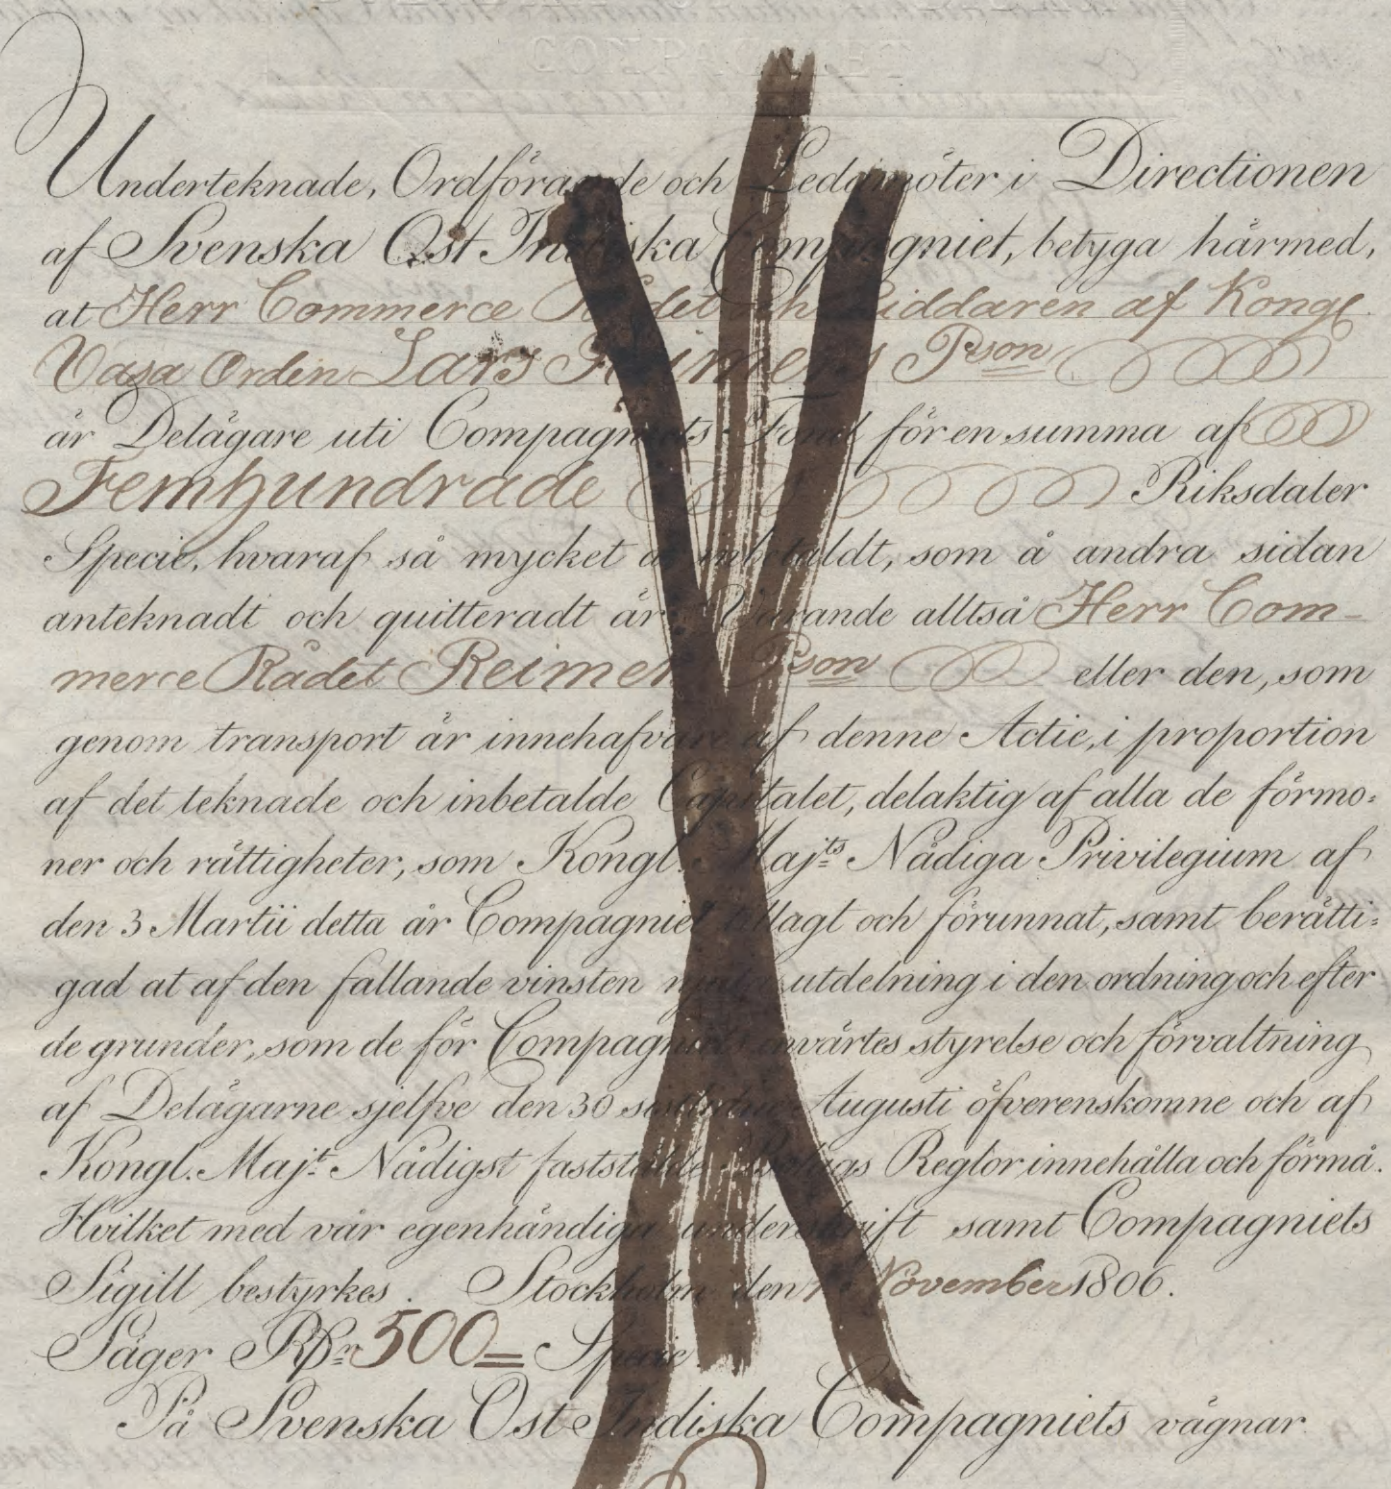 COMPAGNIET
Underteknade, Ordförande och Ledamöter i Directionen
af Svenska Ost Indiska Compagniet, betyga härmed,
at Herr Commerce Rådet och Riddaren af Kongl.
Vasa Orden Lars Reimers Pson
är Delägare uti Compagniets Fond för en summa af
Femhundrade Riksdaler
Specie, hvaraf så mycket är inbetaldt, som å andra sidan
anteknadt och quitteradt är. Varande alltså Herr Com-
merce Rådet Reimers Pson eller den, som
genom transport är innehafvare af denne Actie, i proportion
af det teknade och inbetalde Capitalet, delaktig af alla de förmo-
ner och rättigheter, som Kongl. Majts Nådiga Privilegium af
den 3 Martii detta år Compagniet tillagt och förunnat, samt berätti-
gad at af den fallande vinsten njuta utdelning i den ordning och efter
de grunder, som de för Compagniets invärtes styrelse och förvaltning
af Delägarne sjelfve den 30 sistledne Augusti öfverenskomne och af
Kongl. Majt Nådigst fastställde Bolags Reglor innehålla och förmå.
Hvilket med vår egenhändiga underskrift samt Compagniets
Sigill bestyrkes. Stockholm den November 1806.
Säger RDr 500 = Specie.
På Svenska Ost Indiska Compagniets vägnar